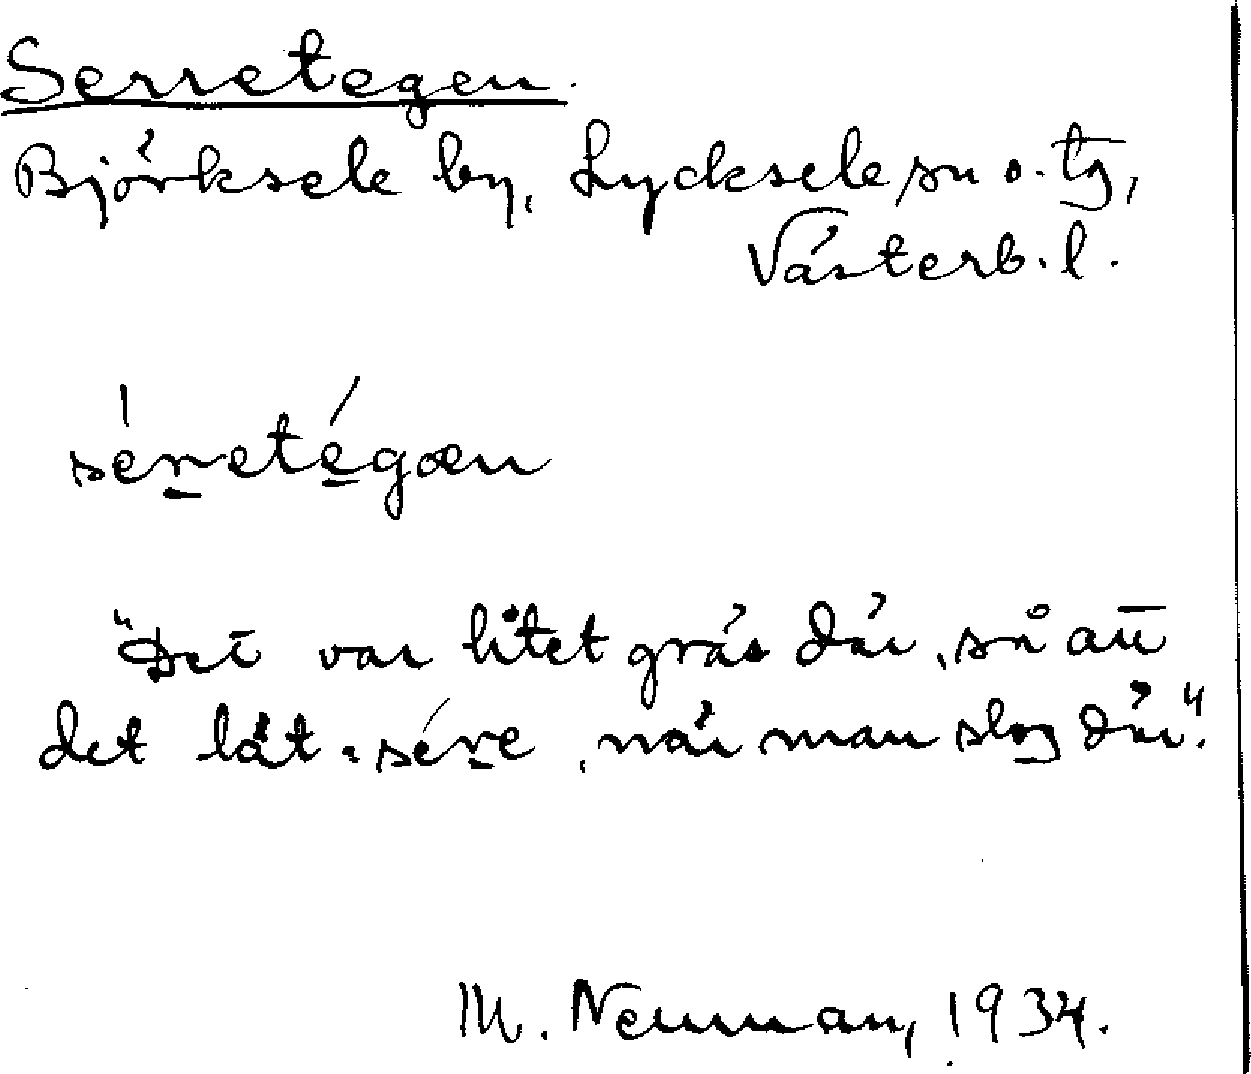 Serretegen.
Björksele by, Lycksele sn o. tg,
Västerb. l.
séretégæn
"Det var litet gräs där, så att
det lät sére, när man slog där."
M. Neuman, 1934.